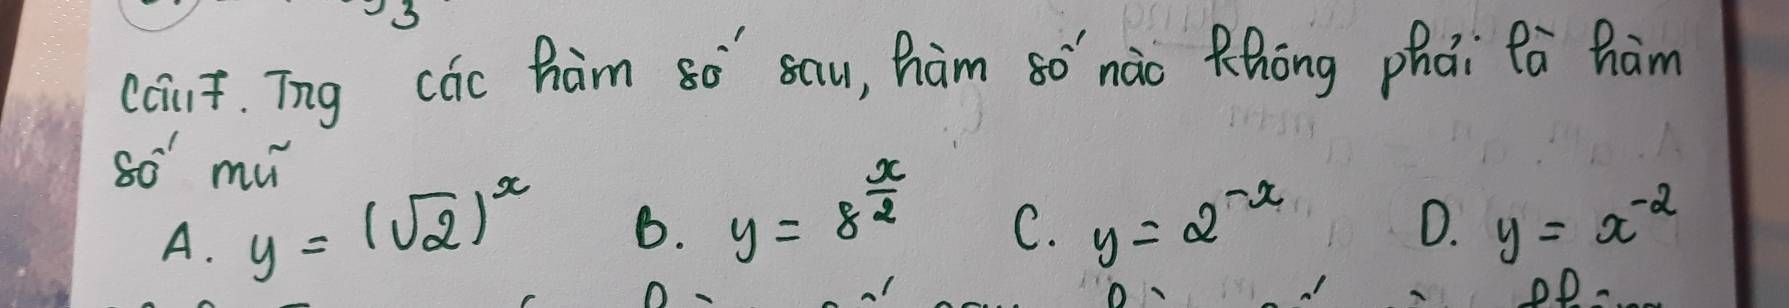 3
Câu 7. Trg các hàm số sau, hàm số nào không phải là hàm
số mũ
A. y = (√2)^x B. y = 8^(x/2) C. y = 2^(-x) D. y = x^(-2)